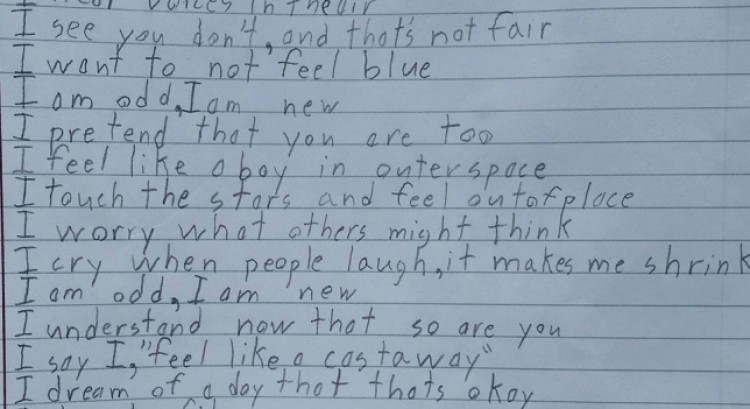 I hear voices in the air
I see you don't, and that's not fair
I want to not feel blue
I am odd, I am new
I pretend that you are too
I feel like a boy in outerspace
I touch the stars and feel outofplace
I worry what others might think
I cry when people laugh, it makes me shrink
I am odd, I am new
I understand now that so are you
I say I, "feel like a castaway"
I dream of a day that thats okay